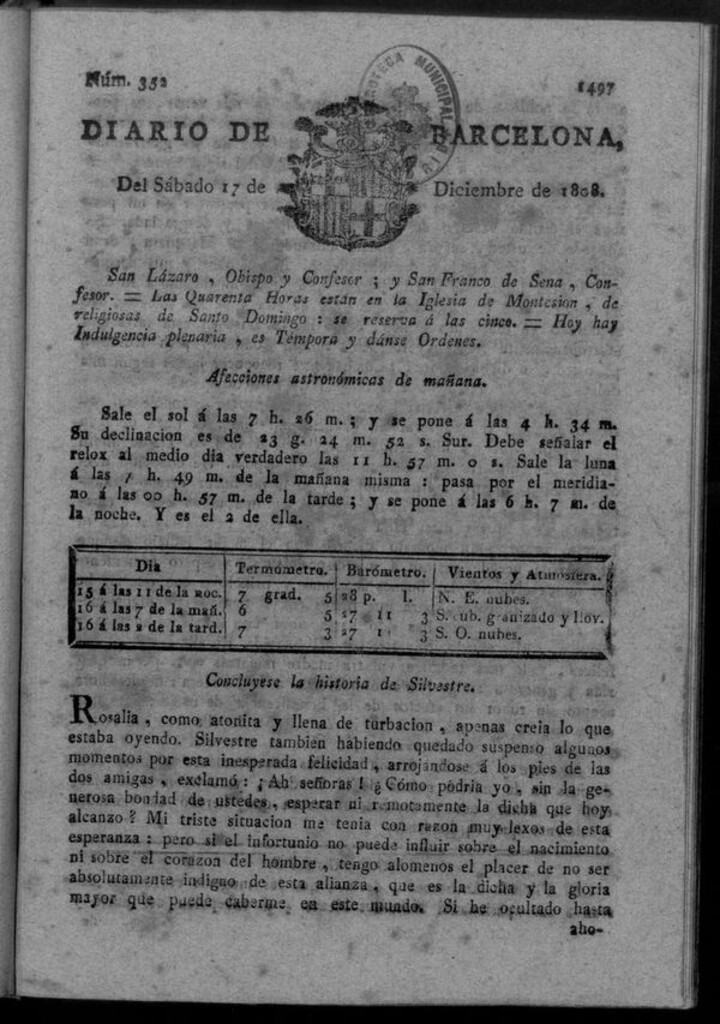 Núm. 352
1497
HEMEROTECA MUNICIPAL
DIARIO DE BARCELONA,
Del Sábado 17 de Diciembre de 1808.
San Lázaro, Obispo y Confesor; y San Franco de Sena, Con-
fesor. = Las Quarenta Horas están en la Iglesia de Montesion, de
religiosas de Santo Domingo: se reserva á las cinco. = Hoy hay
Indulgencia plenaria, es Témpora y dánse Ordenes.
Afecciones astronómicas de mañana.
Sale el sol á las 7 h. 26 m.; y se pone á las 4 h. 34 m.
Su declinacion es de 23 g. 24 m. 52 s. Sur. Debe señalar el
relox al medio dia verdadero las 11 h. 57 m. 0 s. Sale la luna
á las 7 h. 49 m. de la mañana misma: pasa por el meridia-
no á las 00 h. 57 m. de la tarde; y se pone á las 6 h. 7 m. de
la noche. Y es el 2 de ella.
Dia Termómetro. Barómetro. Vientos y Atmósfera.
15 á las 11 de la noc. 7 grad. 5 28 p. l. N. E. nubes.
16 á las 7 de la mañ. 6 5 27 11 3 S. cub. granizado y llov.
16 á las 2 de la tard. 7 3 27 3 S. O. nubes.
Concluyese la historia de Silvestre.
Rosalia, como atonita y llena de turbacion, apenas creia lo que
estaba oyendo. Silvestre tambien habiendo quedado suspenso algunos
momentos por esta inesperada felicidad, arrojandose á los pies de las
dos amigas, exclamó: ¡Ah señoras! ¿Cómo podria yo, sin la ge-
nerosa bondad de ustedes, esperar ni remotamente la dicha que hoy
alcanzo? Mi triste situacion me tenia con razon muy lexos de esta
esperanza: pero si el infortunio no puede influir sobre el nacimiento
ni sobre el corazon del hombre, tengo alomenos el placer de no ser
absolutamente indigno de esta alianza, que es la dicha y la gloria
mayor que puede caberme en este mundo. Si he ocultado hasta
aho-